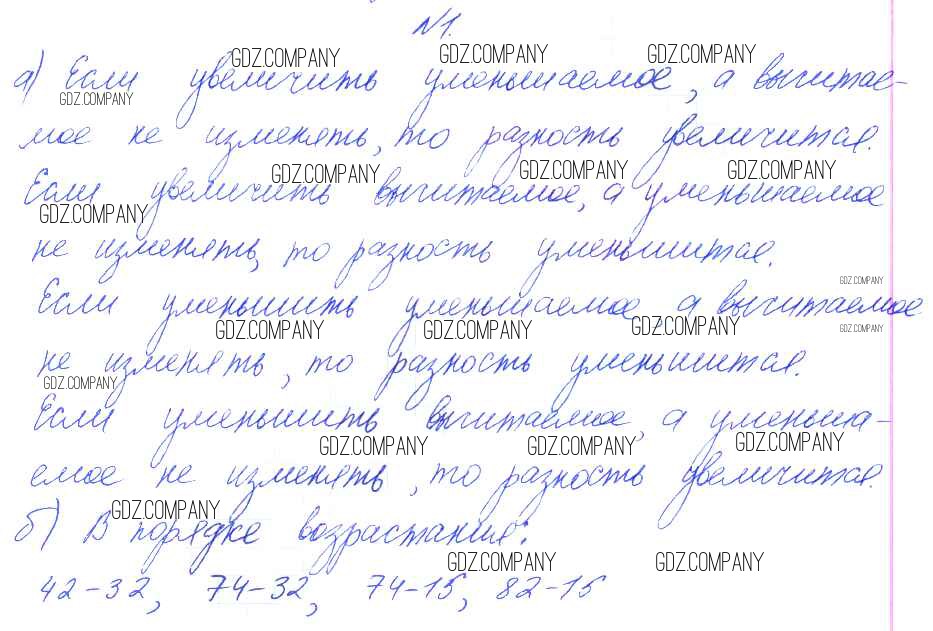 №1.
а) Если увеличить уменьшаемое, а вычитае-
мое не изменять, то разность увеличится.
Если увеличить вычитаемое, а уменьшаемое
не изменять, то разность уменьшится.
Если уменьшить уменьшаемое, а вычитаемое
не изменять, то разность уменьшится.
Если уменьшить вычитаемое, а уменьша-
емое не изменять, то разность увеличится.
б) В порядке возрастания:
42-32, 74-32, 74-15, 82-15
GDZ.COMPANY GDZ.COMPANY GDZ.COMPANY
GDZ.COMPANY
GDZ.COMPANY GDZ.COMPANY GDZ.COMPANY
GDZ.COMPANY
GDZ.COMPANY
GDZ.COMPANY GDZ.COMPANY GDZ.COMPANY GDZ.COMPANY
GDZ.COMPANY
GDZ.COMPANY GDZ.COMPANY GDZ.COMPANY
GDZ.COMPANY
GDZ.COMPANY GDZ.COMPANY